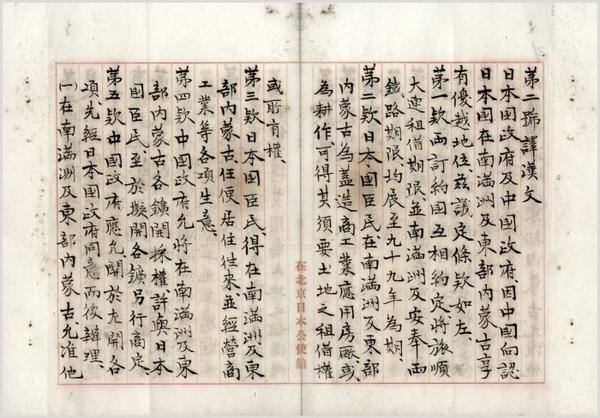 第二號譯漢文
日本國政府及中國政府、因中國向認
日本國在南滿洲及東部內蒙古享
有優越地位、茲議定條欵如左、
第一欵兩訂約國互相約定、將旅順
大連租借期限、並南滿洲及安奉兩
鐵路期限、均展至九十九年為期、
第二欵日本國臣民在南滿洲及東部
內蒙古為蓋造商工業應用房廠、或
為耕作、可得其須要土地之租借權
在北京日本公使館
或所有權、
第三欵日本國臣民、得在南滿洲及東
部內蒙古任便居住往來、並經營商
工業等各項生意、
第四欵中國政府允將在南滿洲及東
部內蒙古各鑛開採權、許與日本
國臣民、至於擬開各鑛、另行商定、
第五欵中國政府應允、關於左開各
項、先經日本國政府同意、而後辦理、
一)在南滿洲及東部內蒙古、允准他